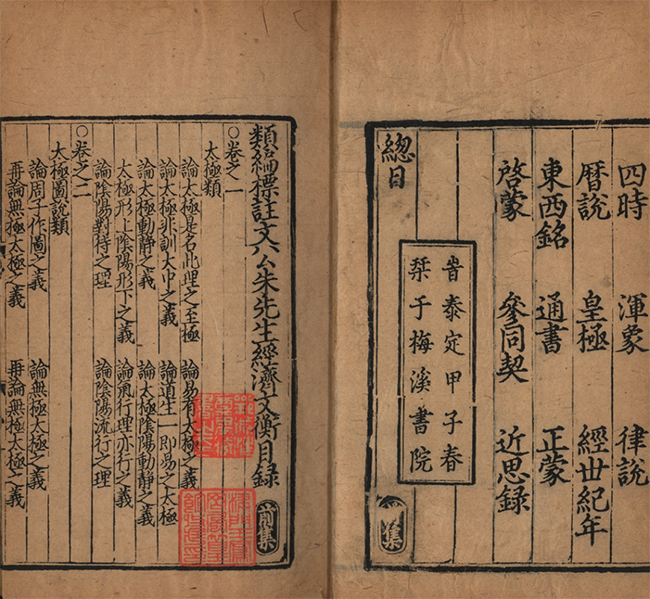 四時　渾象　律說
暦說　皇極　經丗紀年
東西銘　通書　正蒙
啓蒙　參同契　近思録
旹泰定甲子春
栞于梅溪書院
總目
前集
類編標註文公朱先生經濟文衡目録　前集
○卷之一
太極類
論太極是名此理之至極　論易有太極之義
論太極非訓大中之義　論道生一即易之太極
論太極動静之義　論太極陰陽動静之義
太極形上陰陽形下之義　論氣行理亦行之義
論陰陽對待之理　論陰陽流行之理
○卷之二
太極圖說類
論周子作圖之義　論無極太極之義
再論無極太極之義　再論無極太極之義